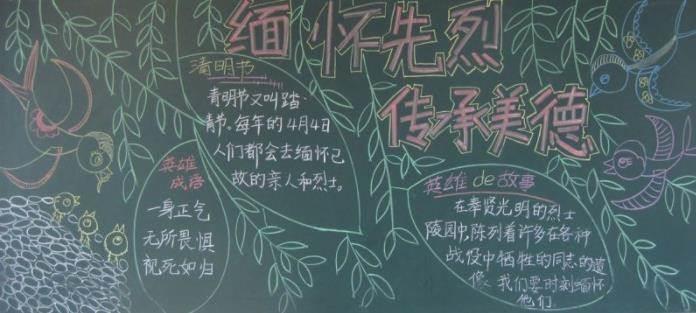 缅怀先烈
传承美德
清明节
青明节又叫踏
青节。每年的4月4日
人们都会去缅怀已
故的亲人和烈士。
英雄
成语
一身正气
无所畏惧
视死如归
英雄de故事
在奉贤光明的烈士
陵园中,陈列着许多在各种
战役中牺牲的同志的遗
像,我们要时刻缅怀
他们